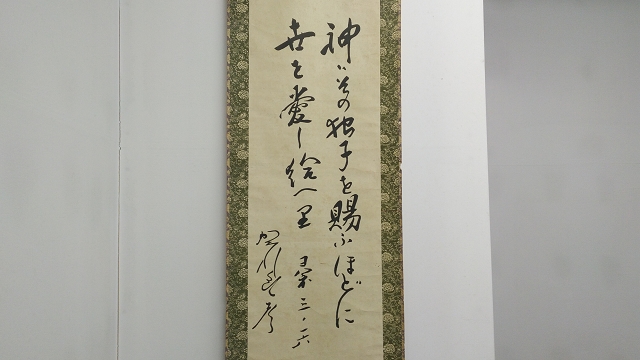 神ハその独子を賜ふほどに
世を愛し給へり ヨハネ三・一六
賀川豊彦